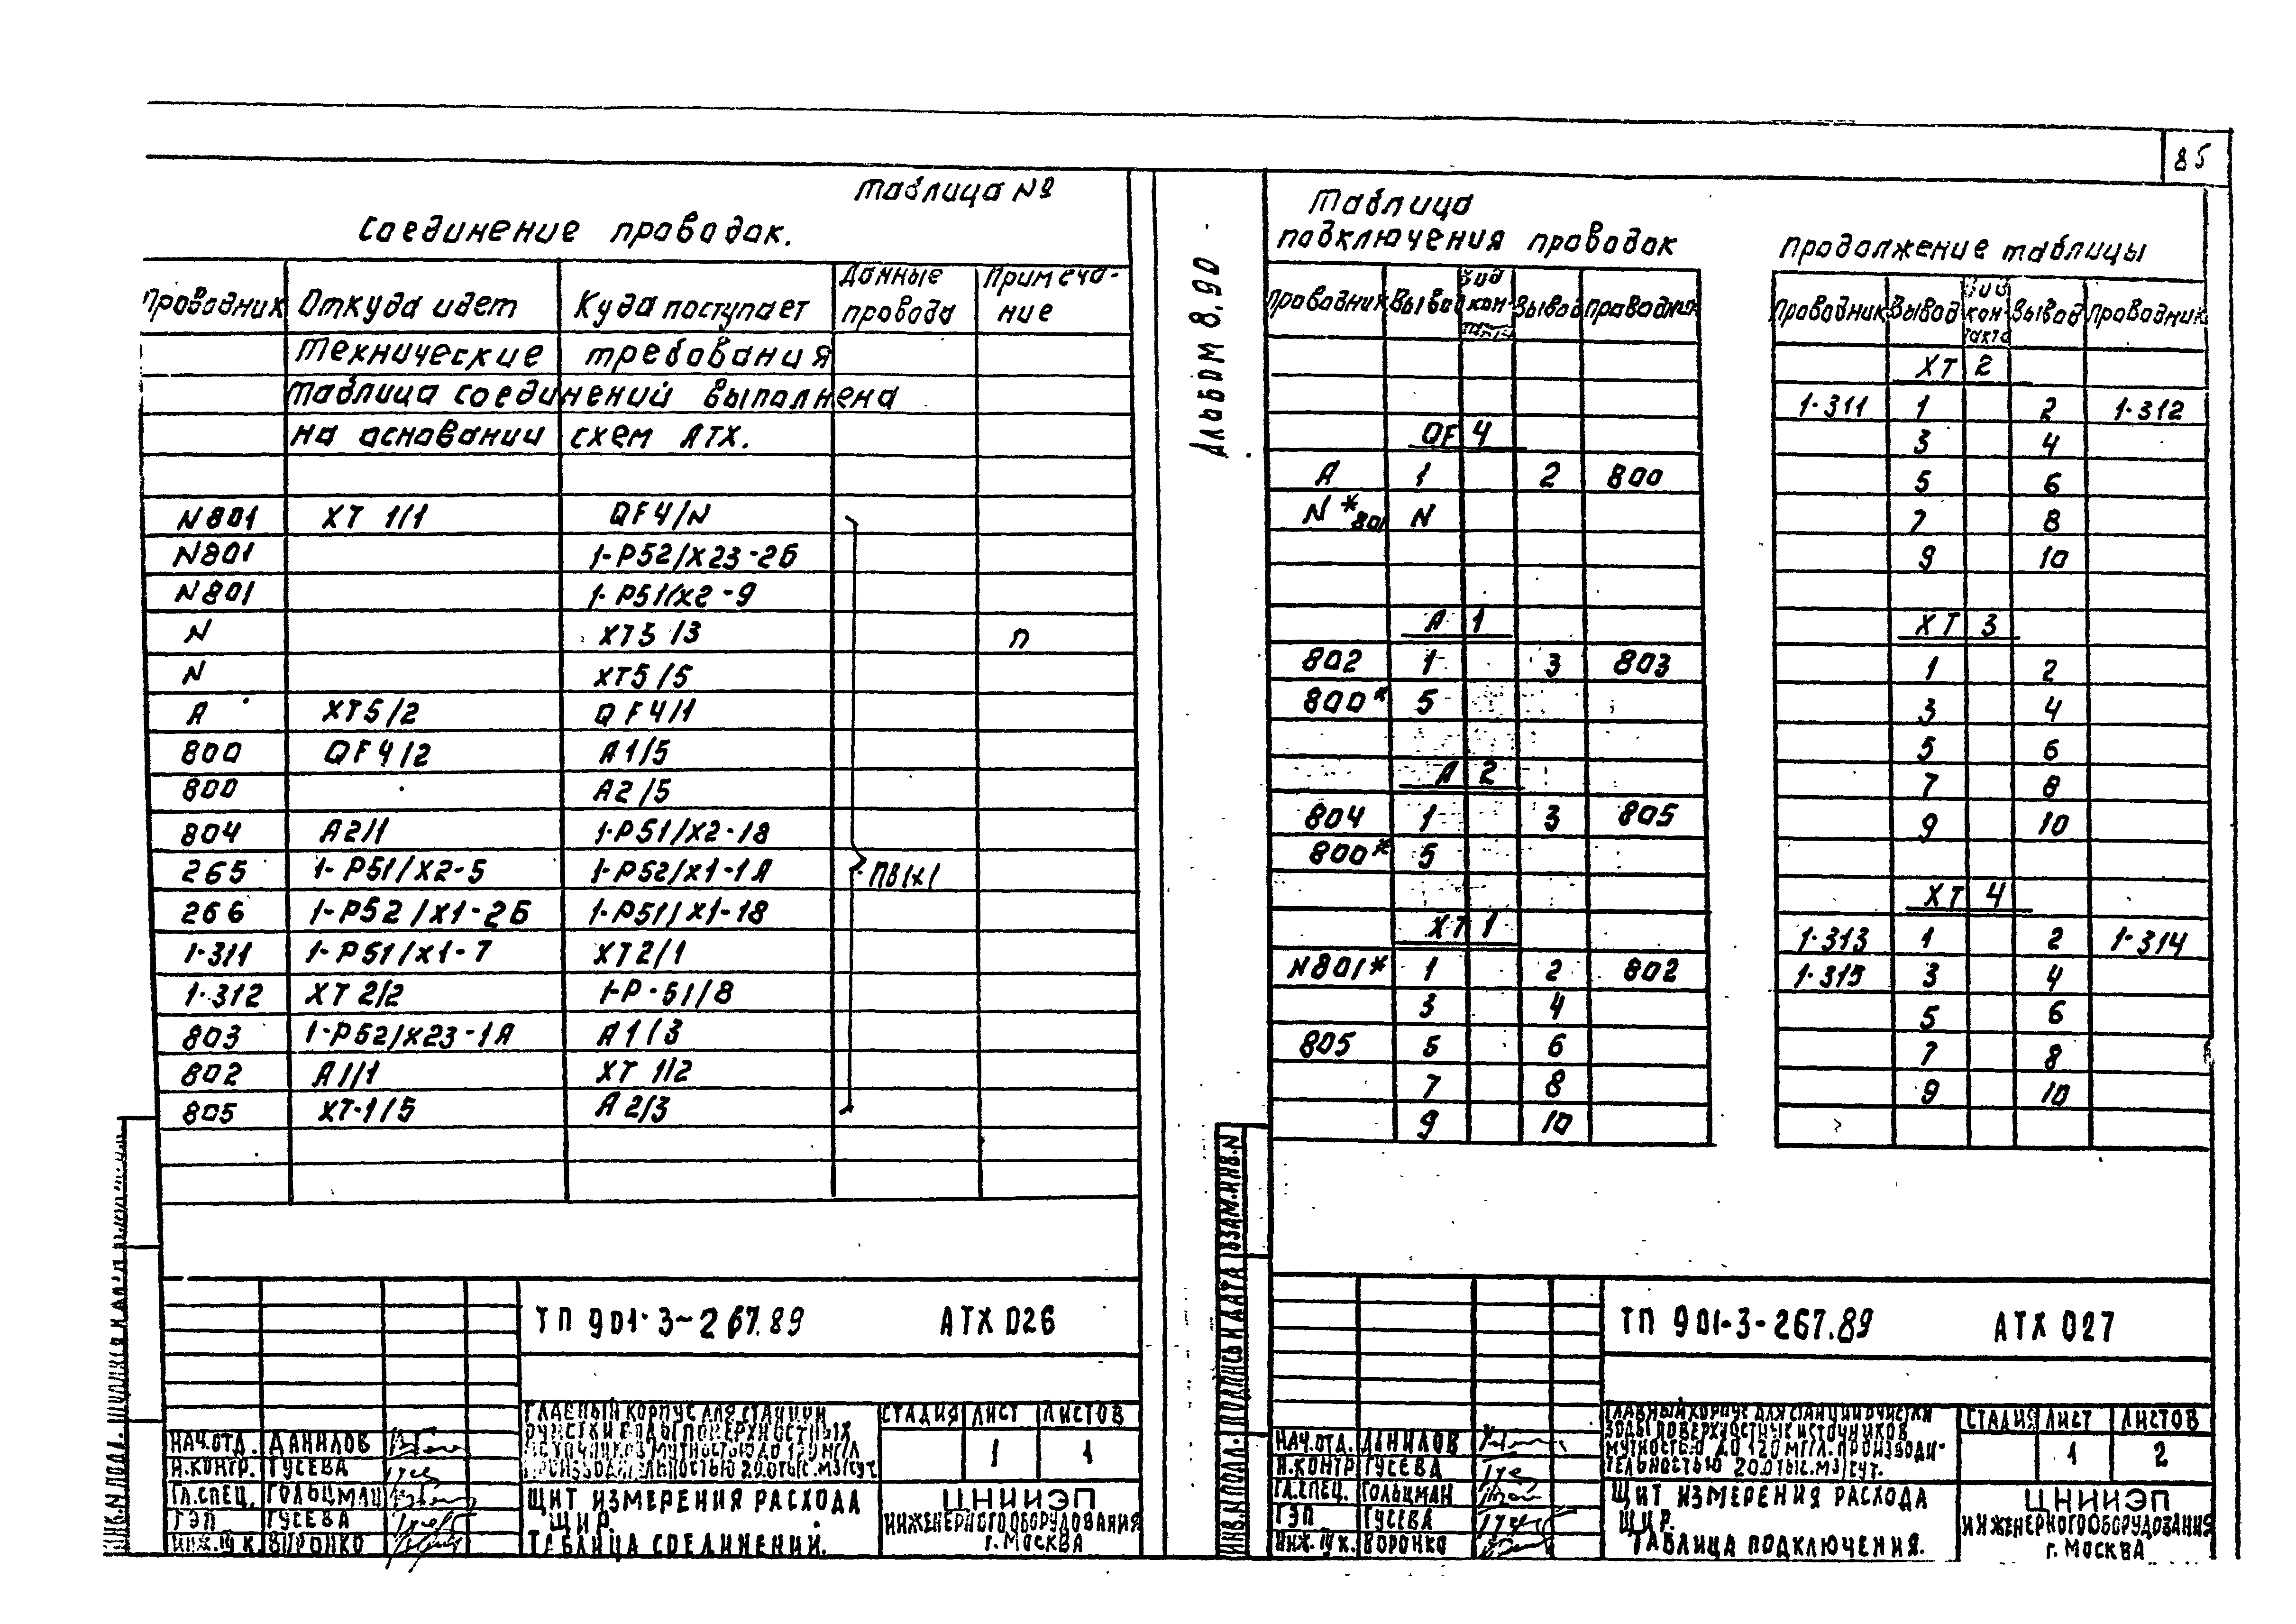 85
Таблица №2
Соединение проводок.
Проводник Откуда идет Куда поступает Данные провода Примечание
Технические требования
Таблица соединений выполнена
на основании схем АТХ.
N801 XT 1/1 QF4/N
N801 1-Р52/Х23-2Б
N801 1-Р51/Х2-9
N XT5/3 п
N XT5/5
А XT5/2 QF4/1
800 QF4/2 А1/5
800 А2/5
804 А2/1 1-Р51/Х2-18
265 1-Р51/Х2-5 1-Р52/Х1-1А ПВ1х1
266 1-Р52/Х1-2Б 1-Р51/Х1-18
1-311 1-Р51/Х1-7 XT2/1
1-312 XT 2/2 1-Р-51/8
803 1-Р52/Х23-1А А1/3
802 А1/1 XT 1/2
805 XT-1/5 А2/3
ТП 901-3-267.89 АТХ 026
ГЛАВНЫЙ КОРПУС ДЛЯ СТАНЦИИ
ОЧИСТКИ ВОДЫ ПОВЕРХНОСТНЫХ
ИСТОЧНИКОВ МУТНОСТЬЮ ДО 120 МГ/Л
ПРОИЗВОДИТЕЛЬНОСТЬЮ 20.0 ТЫС. М3/СУТ
СТАДИЯ ЛИСТ ЛИСТОВ
1 1
НАЧ.ОТД. ДАНИЛОВ
Н.КОНТР. ГУСЕВА
ГЛ.СПЕЦ. ГОЛЬЦМАН
ГЭП ГУСЕВА
ИНЖ. IIк. ВОРОНКО
ЩИТ ИЗМЕРЕНИЯ РАСХОДА
ЩИР.
ТАБЛИЦА СОЕДИНЕНИЙ.
ЦНИИЭП
ИНЖЕНЕРНОГО ОБОРУДОВАНИЯ
г. МОСКВА
Альбом 8.90
ИНВ.N ПОДЛ. ПОДПИСЬ И ДАТА ВЗАМ.ИНВ.N
Таблица
подключения проводок
Проводник Вывод Вид контакта Вывод Проводник
QF 4
А 1 2 800
N*801 N
А 1
802 1 3 803
800* 5
А 2
804 1 3 805
800* 5
XT 1
N801* 1 2 802
3 4
805 5 6
7 8
9 10
Продолжение таблицы
Проводник Вывод Вид контакта Вывод Проводник
XT 2
1-311 1 2 1-312
3 4
5 6
7 8
9 10
XT 3
1 2
3 4
5 6
7 8
9 10
XT 4
1-313 1 2 1-314
1-315 3 4
5 6
7 8
9 10
ТП 901-3-267.89 АТХ 027
ГЛАВНЫЙ КОРПУС ДЛЯ СТАНЦИИ ОЧИСТКИ
ВОДЫ ПОВЕРХНОСТНЫХ ИСТОЧНИКОВ
МУТНОСТЬЮ ДО 120 МГ/Л. ПРОИЗВОДИ-
ТЕЛЬНОСТЬЮ 20.0 ТЫС. М3/СУТ.
СТАДИЯ ЛИСТ ЛИСТОВ
1 2
НАЧ.ОТД. ДАНИЛОВ
Н.КОНТР ГУСЕВА
ГЛ.СПЕЦ. ГОЛЬЦМАН
ГЭП ГУСЕВА
ИНЖ. IIк. ВОРОНКО
ЩИТ ИЗМЕРЕНИЯ РАСХОДА
ЩИР.
ТАБЛИЦА ПОДКЛЮЧЕНИЯ.
ЦНИИЭП
ИНЖЕНЕРНОГО ОБОРУДОВАНИЯ
г. МОСКВА